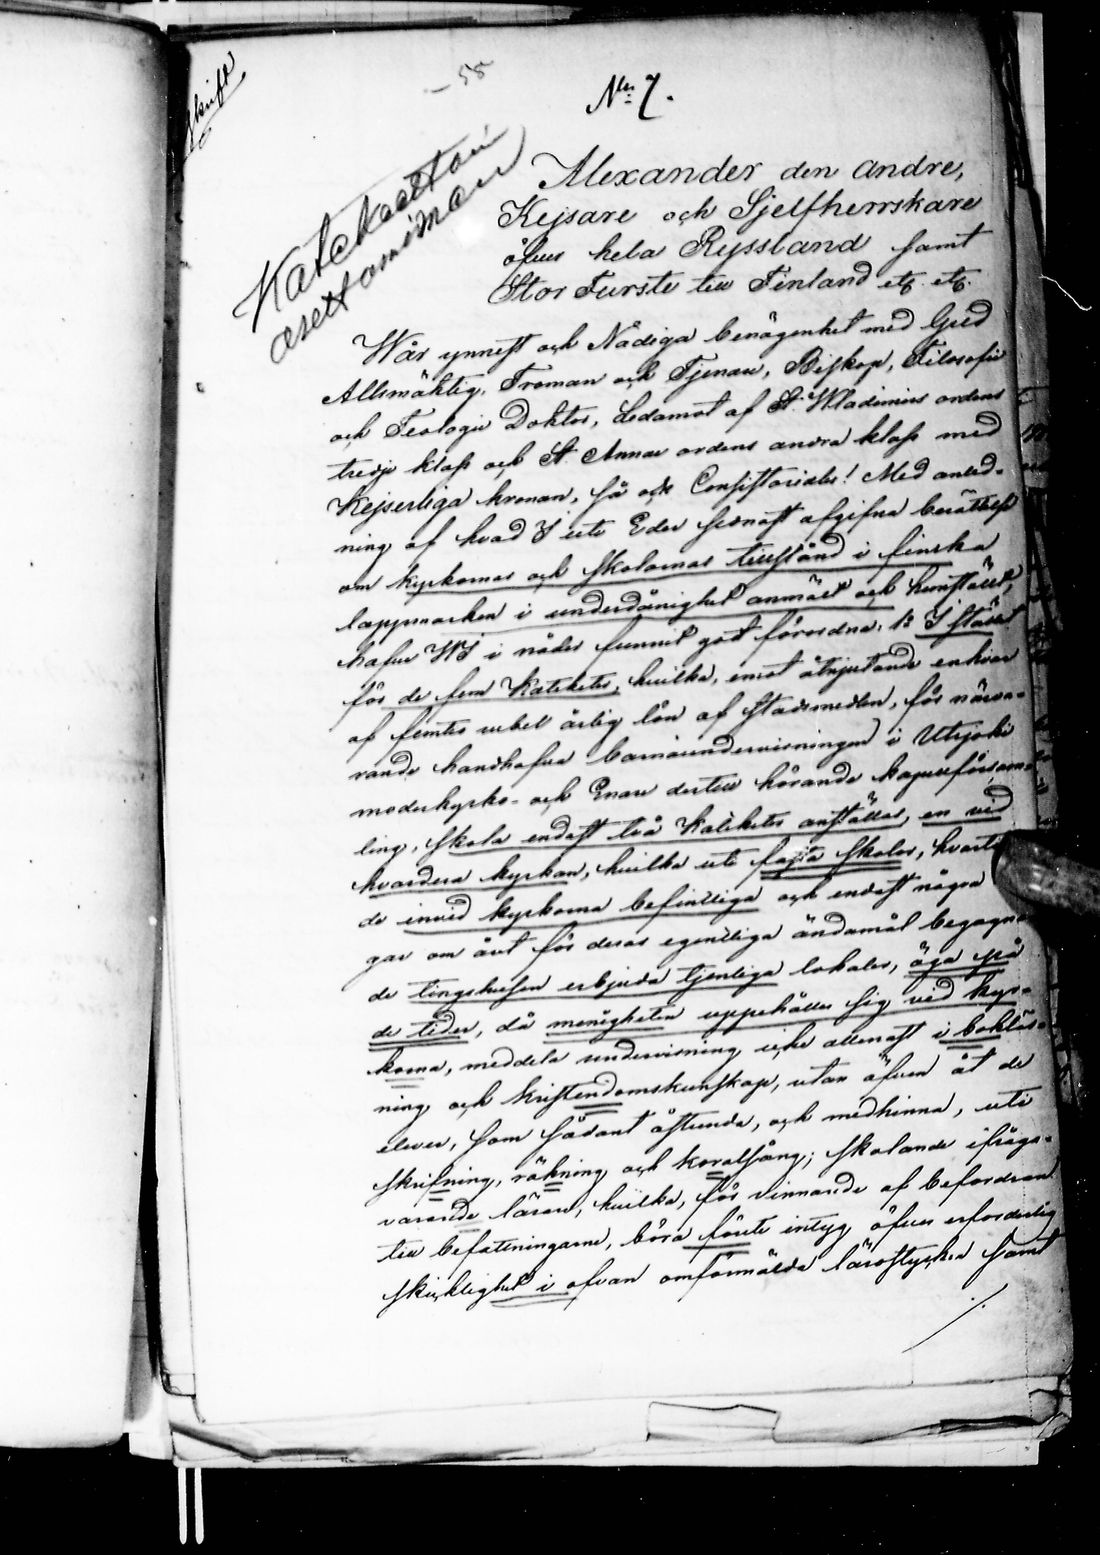 – 55
N:o 7.
Katekeettain
asettaminen
Alexander den Andre,
Kejsare och Sjelfherrskare
öfver hela Ryssland samt
Stor Furste till Finland etc. etc.
Wår ynnest och Nådiga benägenhet med Gud
Allsmäktig, Troman och Tjenare, Biskop, Filosofie
och Teologie Doktor, Ledamot af St. Wladimirs ordens
tredje klass och St. Annae ordens andra klass med
Kejserliga kronan, så ock Consistoriales! Med anled-
ning af hvad I uti Eder senast afgifna berättelse
om kyrkornas och skolornas tillstånd i finska
lappmarken i underdånighet anmält och hemställt,
hafve WI i nåder funnit godt förordna: 1:o I stället
för de fem Kateketer, hvilka, emot åtnjutande enhvar
af femtio rubel årlig lön af statsmedlen, för närva-
rande handhafva barnaundervisningen i Utsjoki
moderkyrko- och Enare dertill hörande kapellförsam-
ling, skola endast två Kateketer anställas, en vid
hvardera kyrkan, hvilka uti fasta skolor, hvartill
de invid kyrkorna befintliga och endast några
gar om året för deras egentliga ändamål begagna
de tingshusen erbjuda tjenliga lokaler, äga på
de tider, då menigheten uppehåller sig vid kyr-
korna, meddela undervisning icke allenast i boklä-
ning och kristendomskunskap, utan äfven åt de
elever, som sådant åstunda, och medhinna, uti
skrifning, räkning och koralsång; skolande ifråga-
varande lärare, hvilka, för vinnande af befordran
till befattningarne, böra förete intyg öfver erforderlig
skicklighet i ofvan omförmälda lärostycken samt
./.